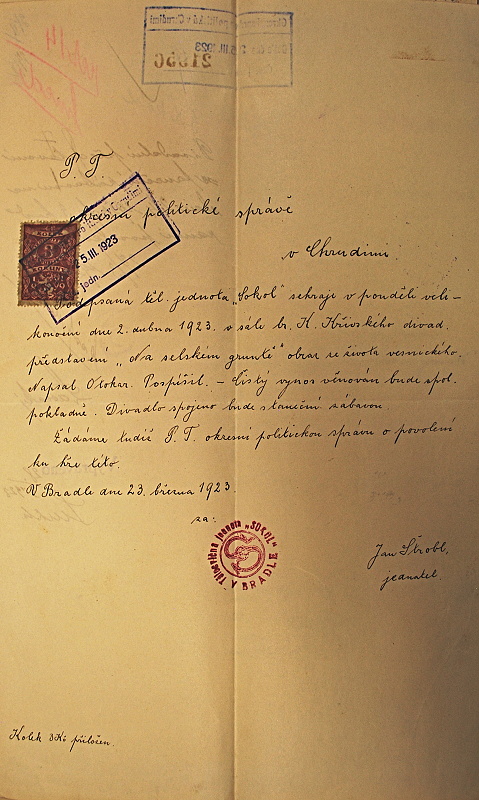 P. T.
okresní politické správě
v Chrudimi
25. III. 1923
jedn.
Podepsaná těl. jednota „Sokol" sehraje v pondělí veli-
konoční dne 2. dubna 1923. v sále br. K. Křivského divad.
představení „Na selském gruntě" obraz ze života vesnického.
Napsal Otokar Pospíšil. – Čistý výnos věnován bude spol.
pokladně. Divadlo spojeno bude s taneční zábavou.
Žádáme tudíž P. T. okresní politickou správu o povolení
ku hře této.
V Bradle dne 23. března 1923.
za:
Tělocvičná jednota „SOKOL"
V BRADLE
Jan Štrobl,
jednatel.
Kolek 3 Kč přiložen.